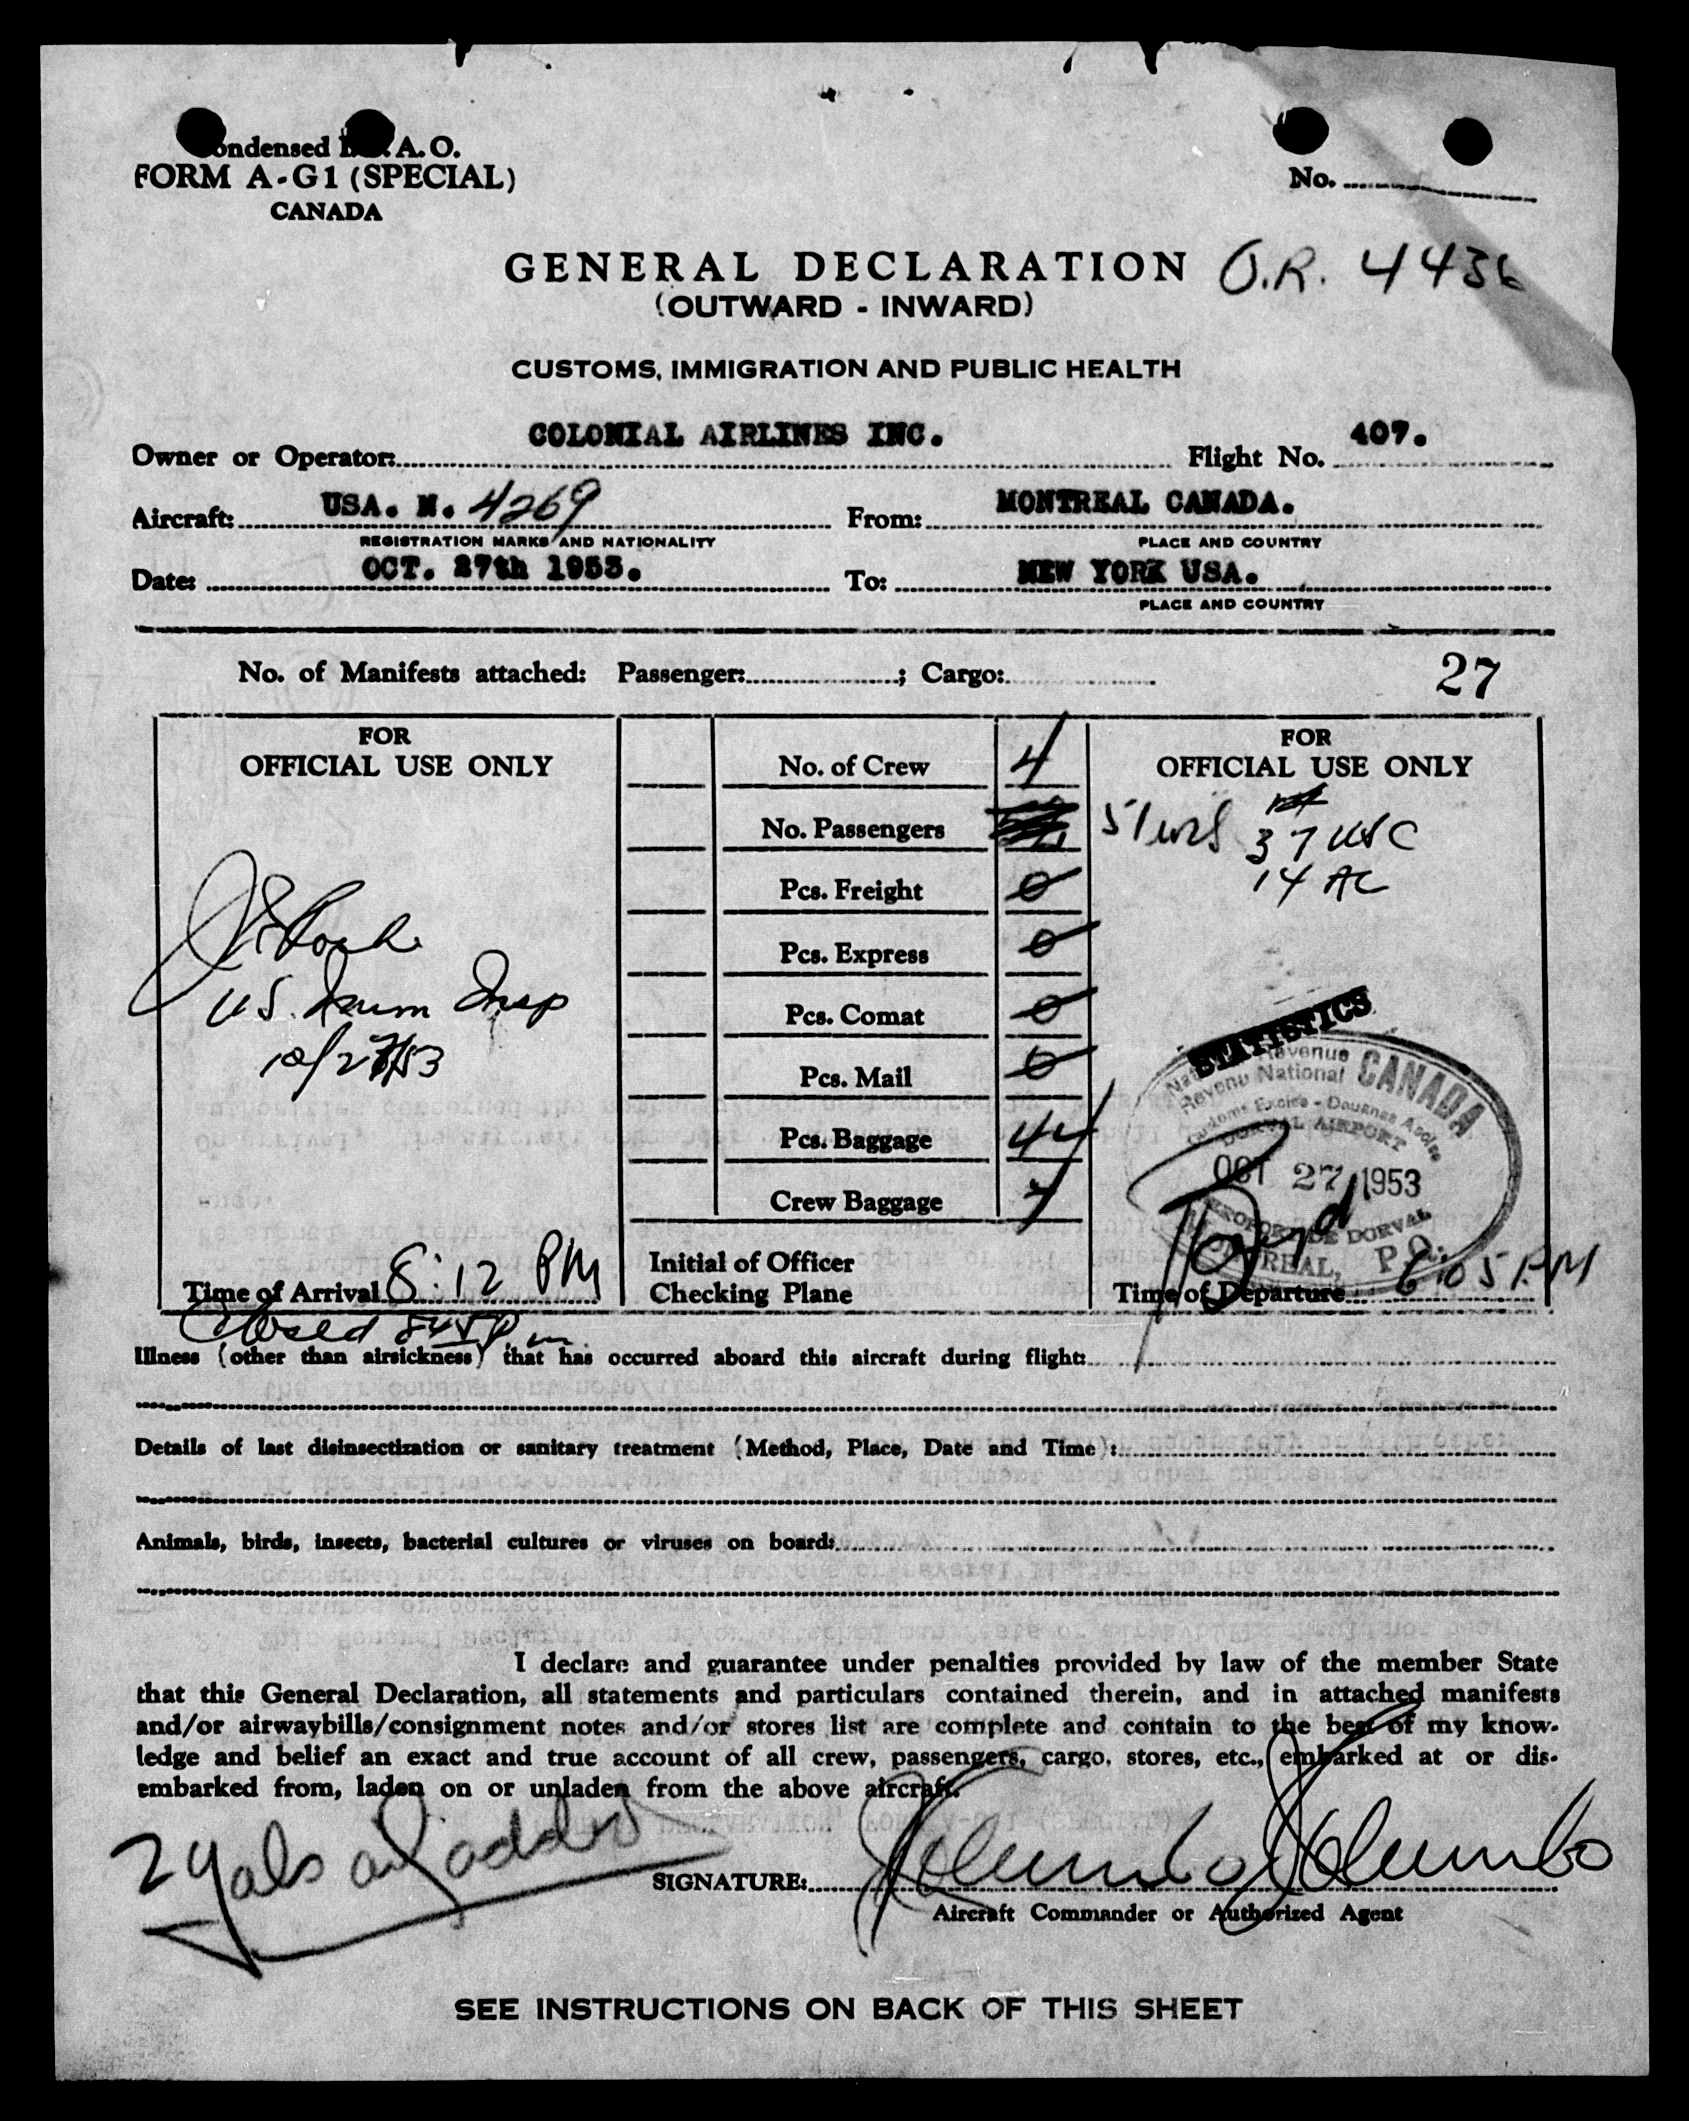 Condensed I.C.A.O.
FORM A-G1 (SPECIAL)
CANADA
No.
GENERAL DECLARATION O.R. 4436
(OUTWARD - INWARD)
CUSTOMS, IMMIGRATION AND PUBLIC HEALTH
Owner or Operator: COLONIAL AIRLINES INC. Flight No. 407.
Aircraft: USA. N. 4269 From: MONTREAL CANADA.
REGISTRATION MARKS AND NATIONALITY PLACE AND COUNTRY
Date: OCT. 27th 1953. To: NEW YORK USA.
PLACE AND COUNTRY
No. of Manifests attached: Passenger: ; Cargo: 27
FOR
OFFICIAL USE ONLY
U.S. Imm Insp
10/27/53
Time of Arrival 8:12 PM
Closed 845 P.m.
No. of Crew 4
No. Passengers
Pcs. Freight 0
Pcs. Express 0
Pcs. Comat 0
Pcs. Mail 0
Pcs. Baggage 44
Crew Baggage
Initial of Officer
Checking Plane
FOR
OFFICIAL USE ONLY
51
37 USC
14 AC
STATISTICS
National Revenue CANADA
Revenu National
Customs Excise - Douanes Accise
DORVAL AIRPORT
OCT 27 1953
AEROPORT DE DORVAL
MONTREAL, P.Q.
Time of Departure 6:05 P.M
Illness (other than airsickness) that has occurred aboard this aircraft during flight:
Details of last disinsectization or sanitary treatment (Method, Place, Date and Time):
Animals, birds, insects, bacterial cultures or viruses on board:
I declare and guarantee under penalties provided by law of the member State
that this General Declaration, all statements and particulars contained therein, and in attached manifests
and/or airwaybills/consignment notes and/or stores list are complete and contain to the best of my know-
ledge and belief an exact and true account of all crew, passengers, cargo, stores, etc., embarked at or dis-
embarked from, laden on or unladen from the above aircraft.
2 gals oil added
SIGNATURE:
Aircraft Commander or Authorized Agent
SEE INSTRUCTIONS ON BACK OF THIS SHEET